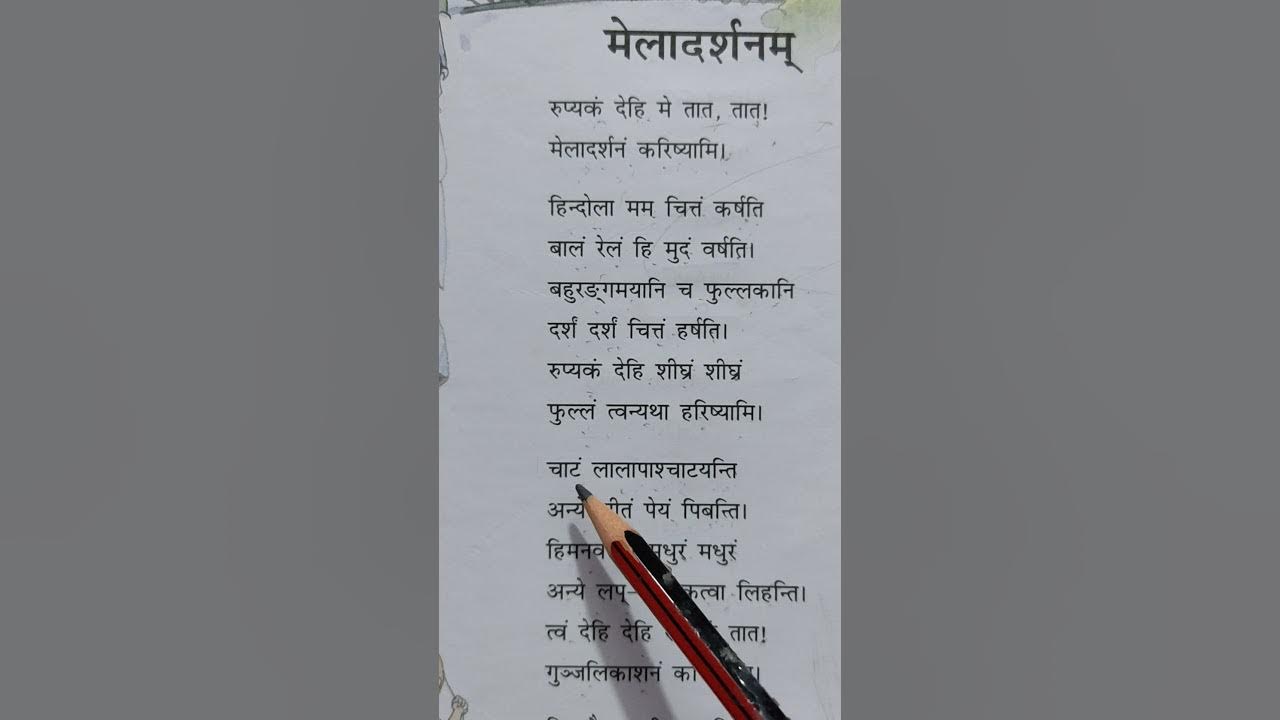 मेलादर्शनम्
रुप्यकं देहि मे तात, तात!
मेलादर्शनं करिष्यामि।
हिन्दोला मम चित्तं कर्षति
बालं रेलं हि मुदं वर्षति।
बहुरङ्गमयानि च फुल्लकानि
दर्शं दर्शं चित्तं हर्षति।
रुप्यकं देहि शीघ्रं शीघ्रं
फुल्लं त्वन्यथा हरिष्यामि।
चाटं लालापाश्चाटयन्ति
अन्ये पेयं पिबन्ति।
मधुरं मधुरं
अन्ये लिहन्ति।
त्वं देहि देहि तात!
गुञ्जलिकाशनं